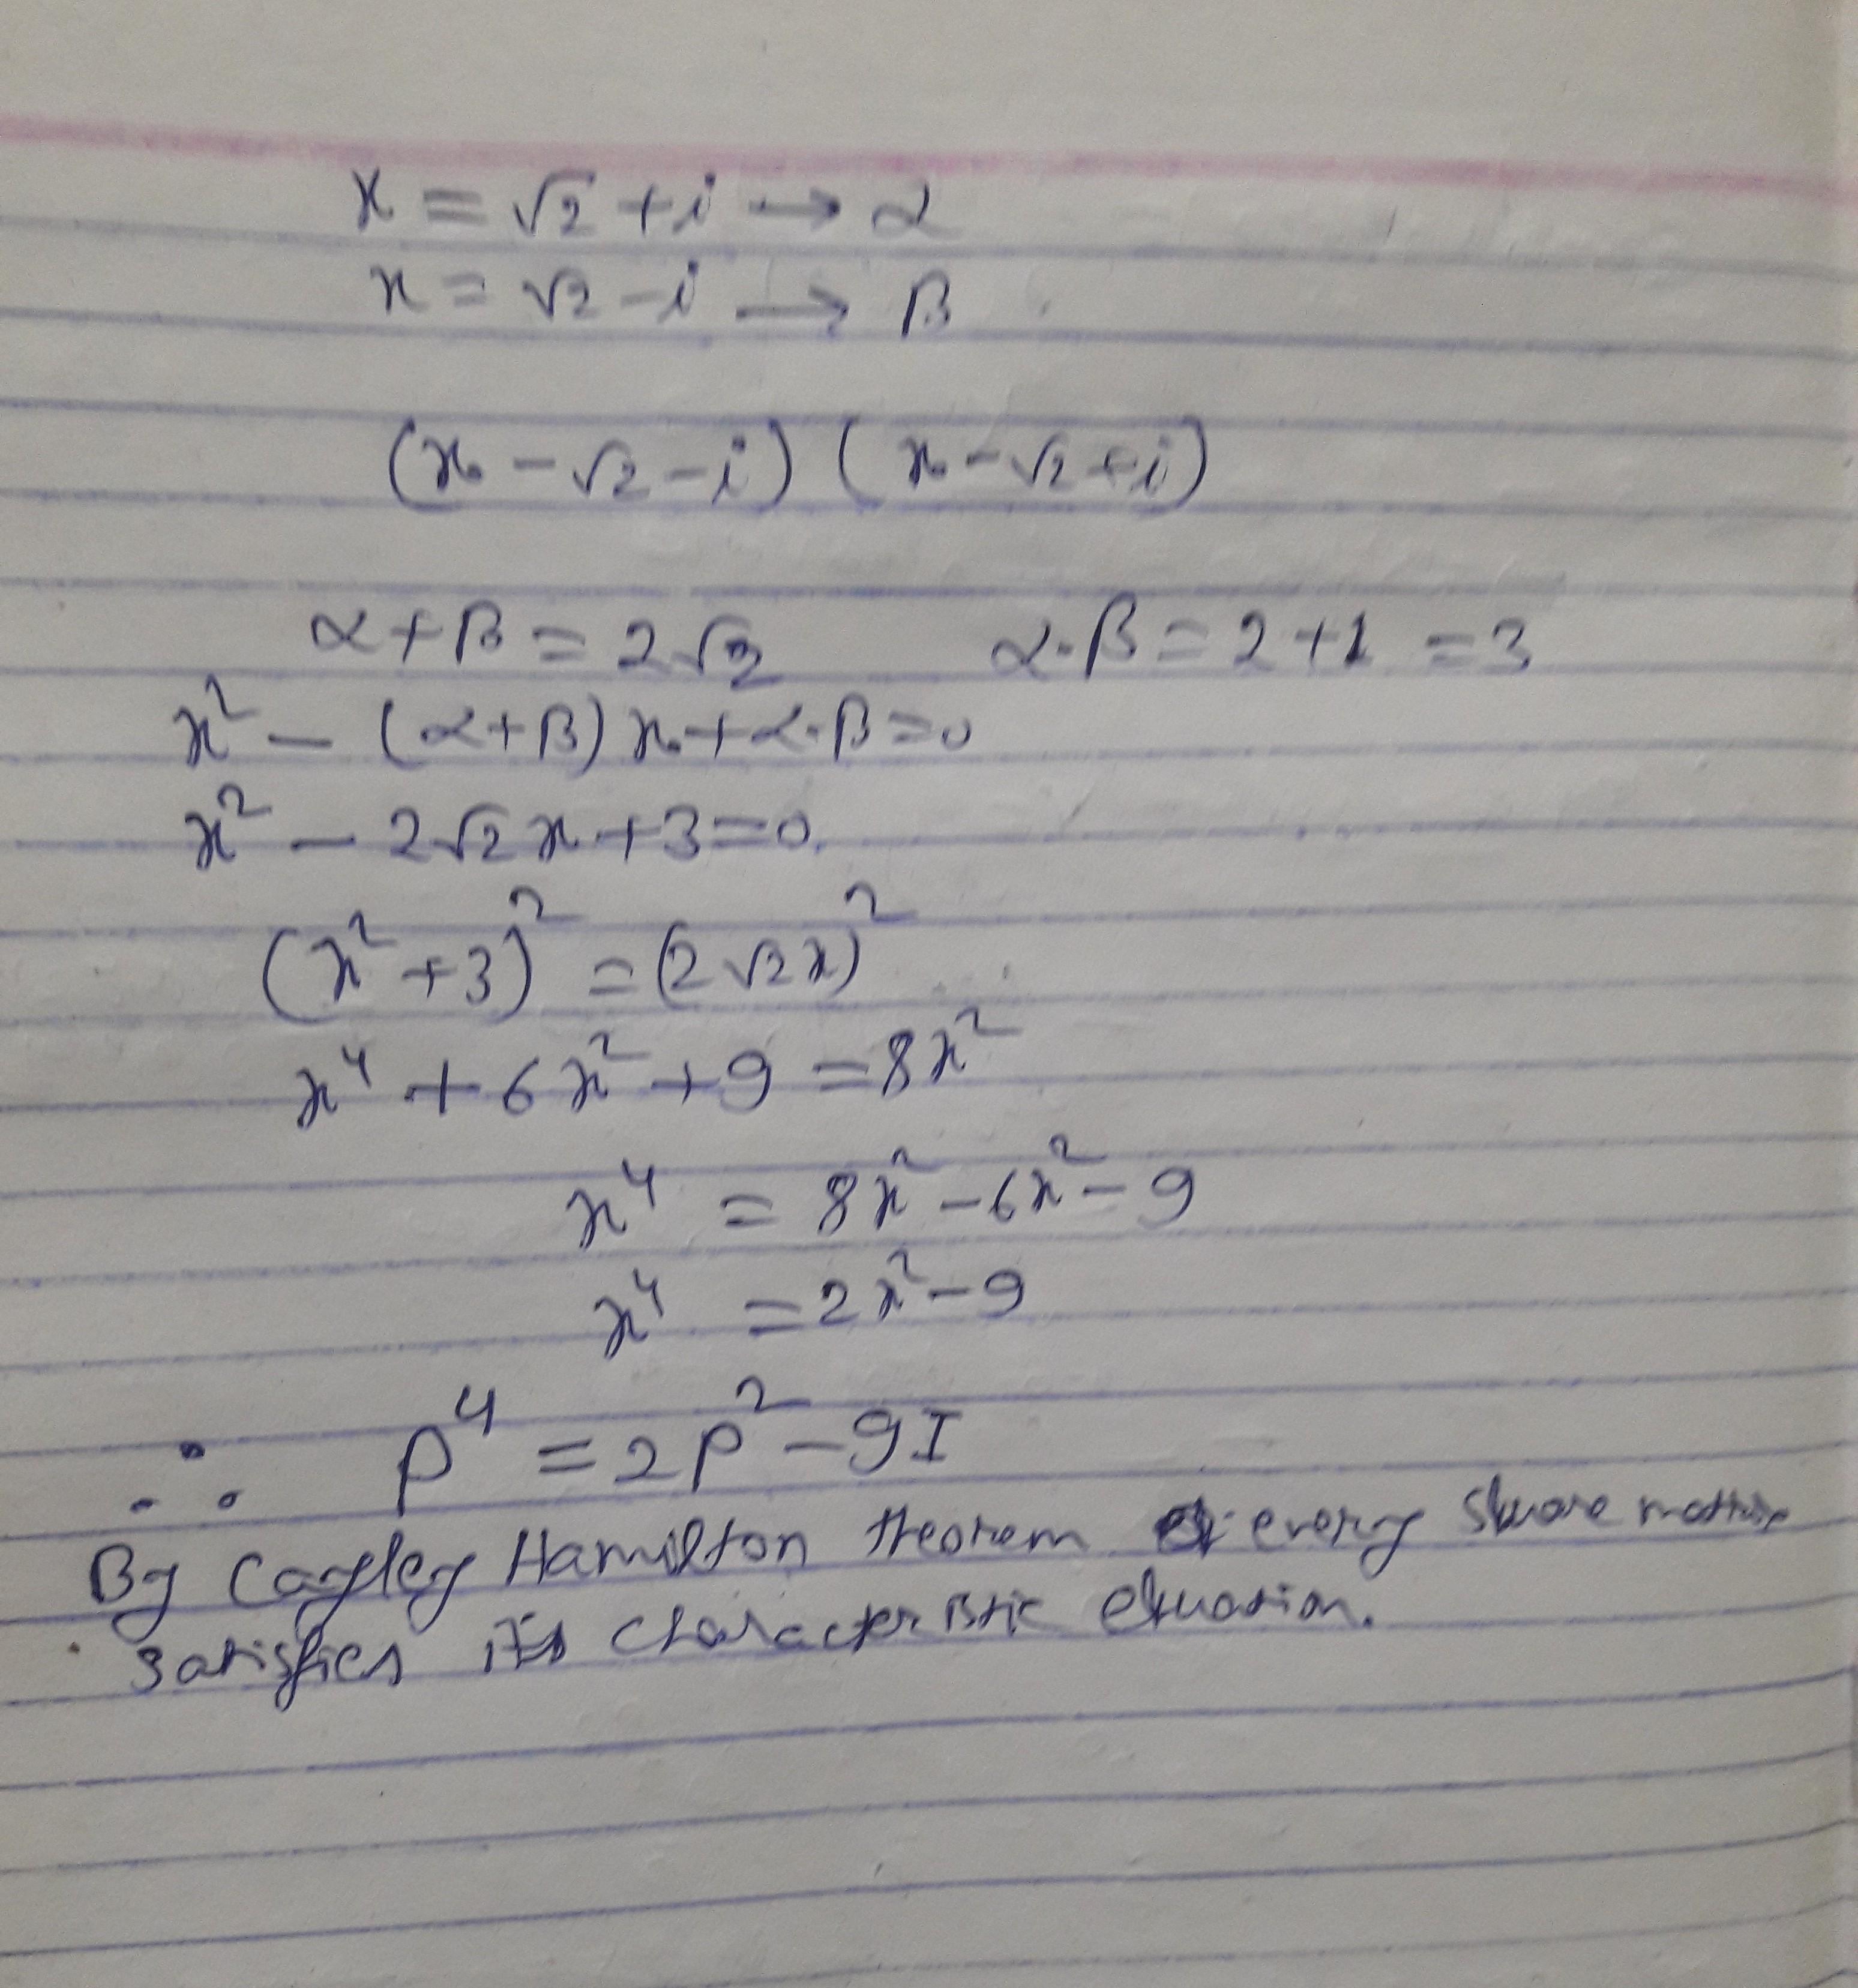 x = √2 + i → α
x = √2 - i → β
(x - √2 - i) (x - √2 + i)
α + β = 2√2 α·β = 2 + 1 = 3
x² - (α + β) x + α·β = 0
x² - 2√2 x + 3 = 0.
(x² + 3)² = (2√2 x)²
x⁴ + 6x² + 9 = 8x²
x⁴ = 8x² - 6x² - 9
x⁴ = 2x² - 9
∴ P⁴ = 2P² - 9I
By Cayley Hamilton theorem every square matrix
satisfies its characteristic equation.